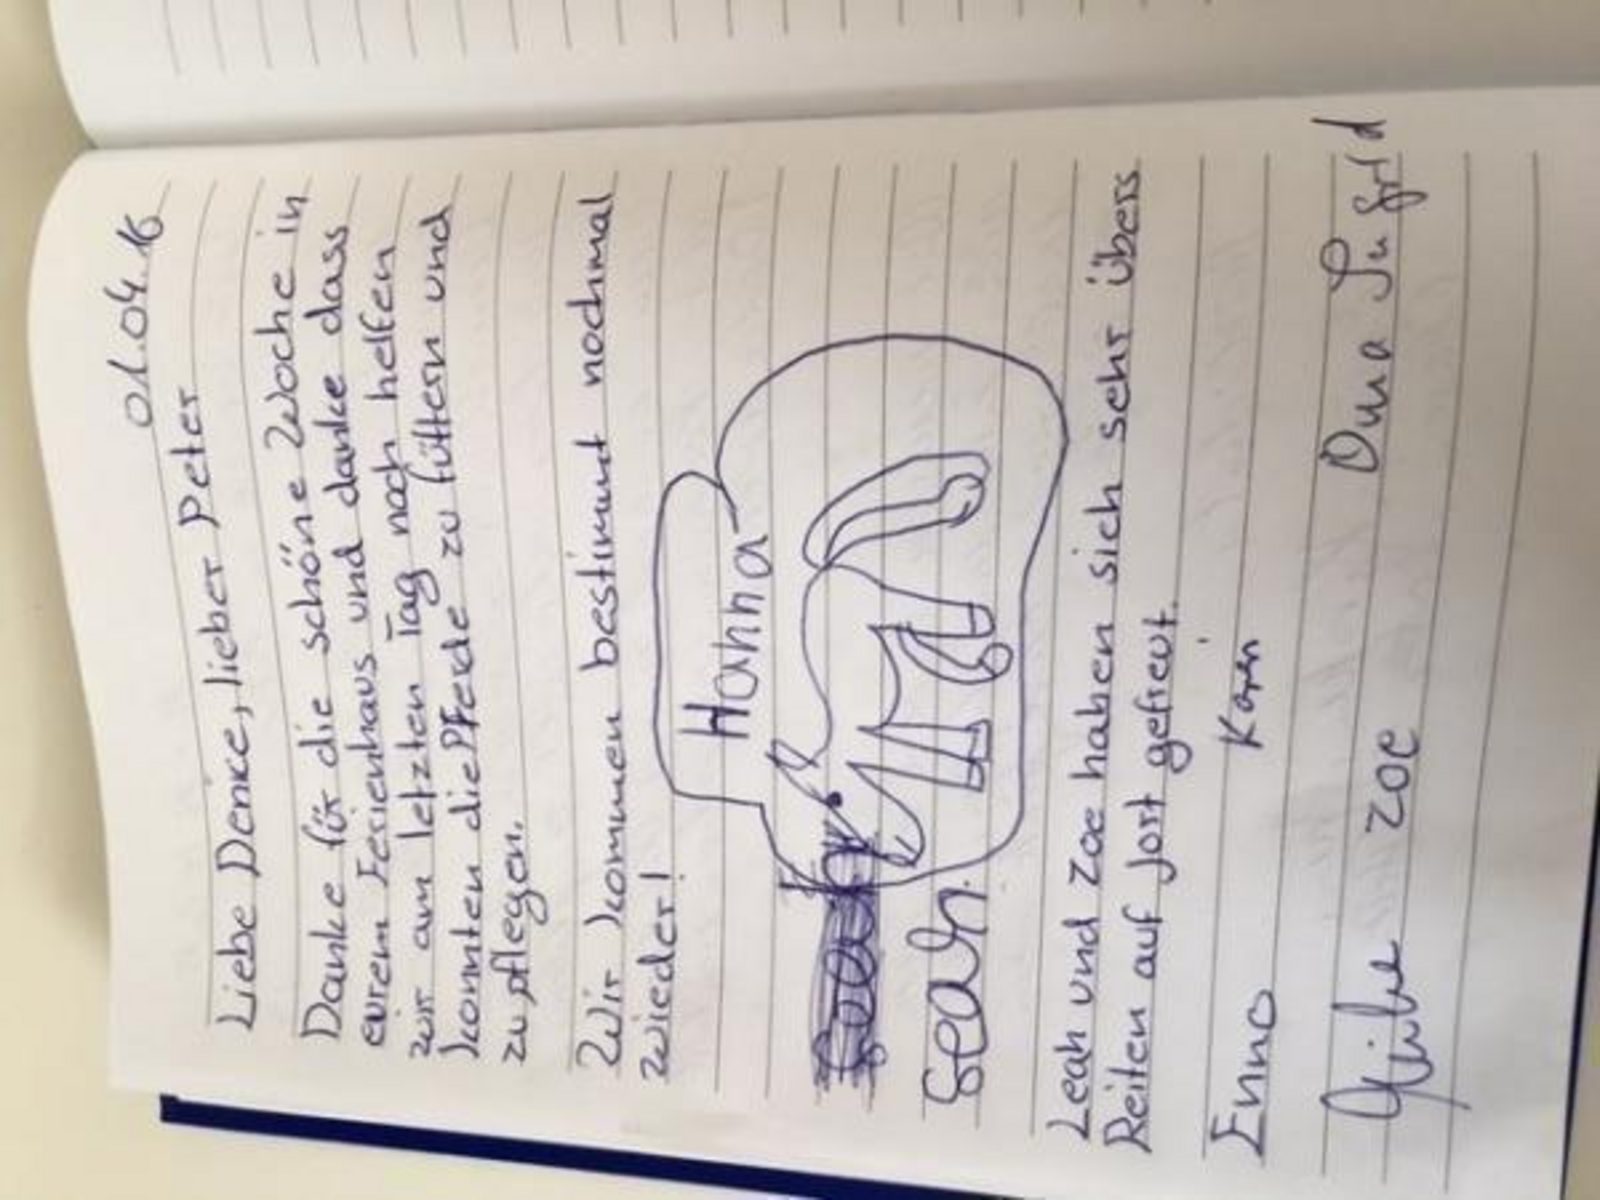 01.04.16
Liebe Denice, lieber Peter
Danke für die schöne Woche in
eurem Ferienhaus und danke dass
wir am letzten Tag noch helfen
konnten die Pferde zu füttern und
zu pflegen.
Wir kommen bestimmt nochmal
wieder!
Hanna
Leah und Zoe haben sich sehr übers
Reiten auf Jort gefreut.
Enno Karen
zoe Oma